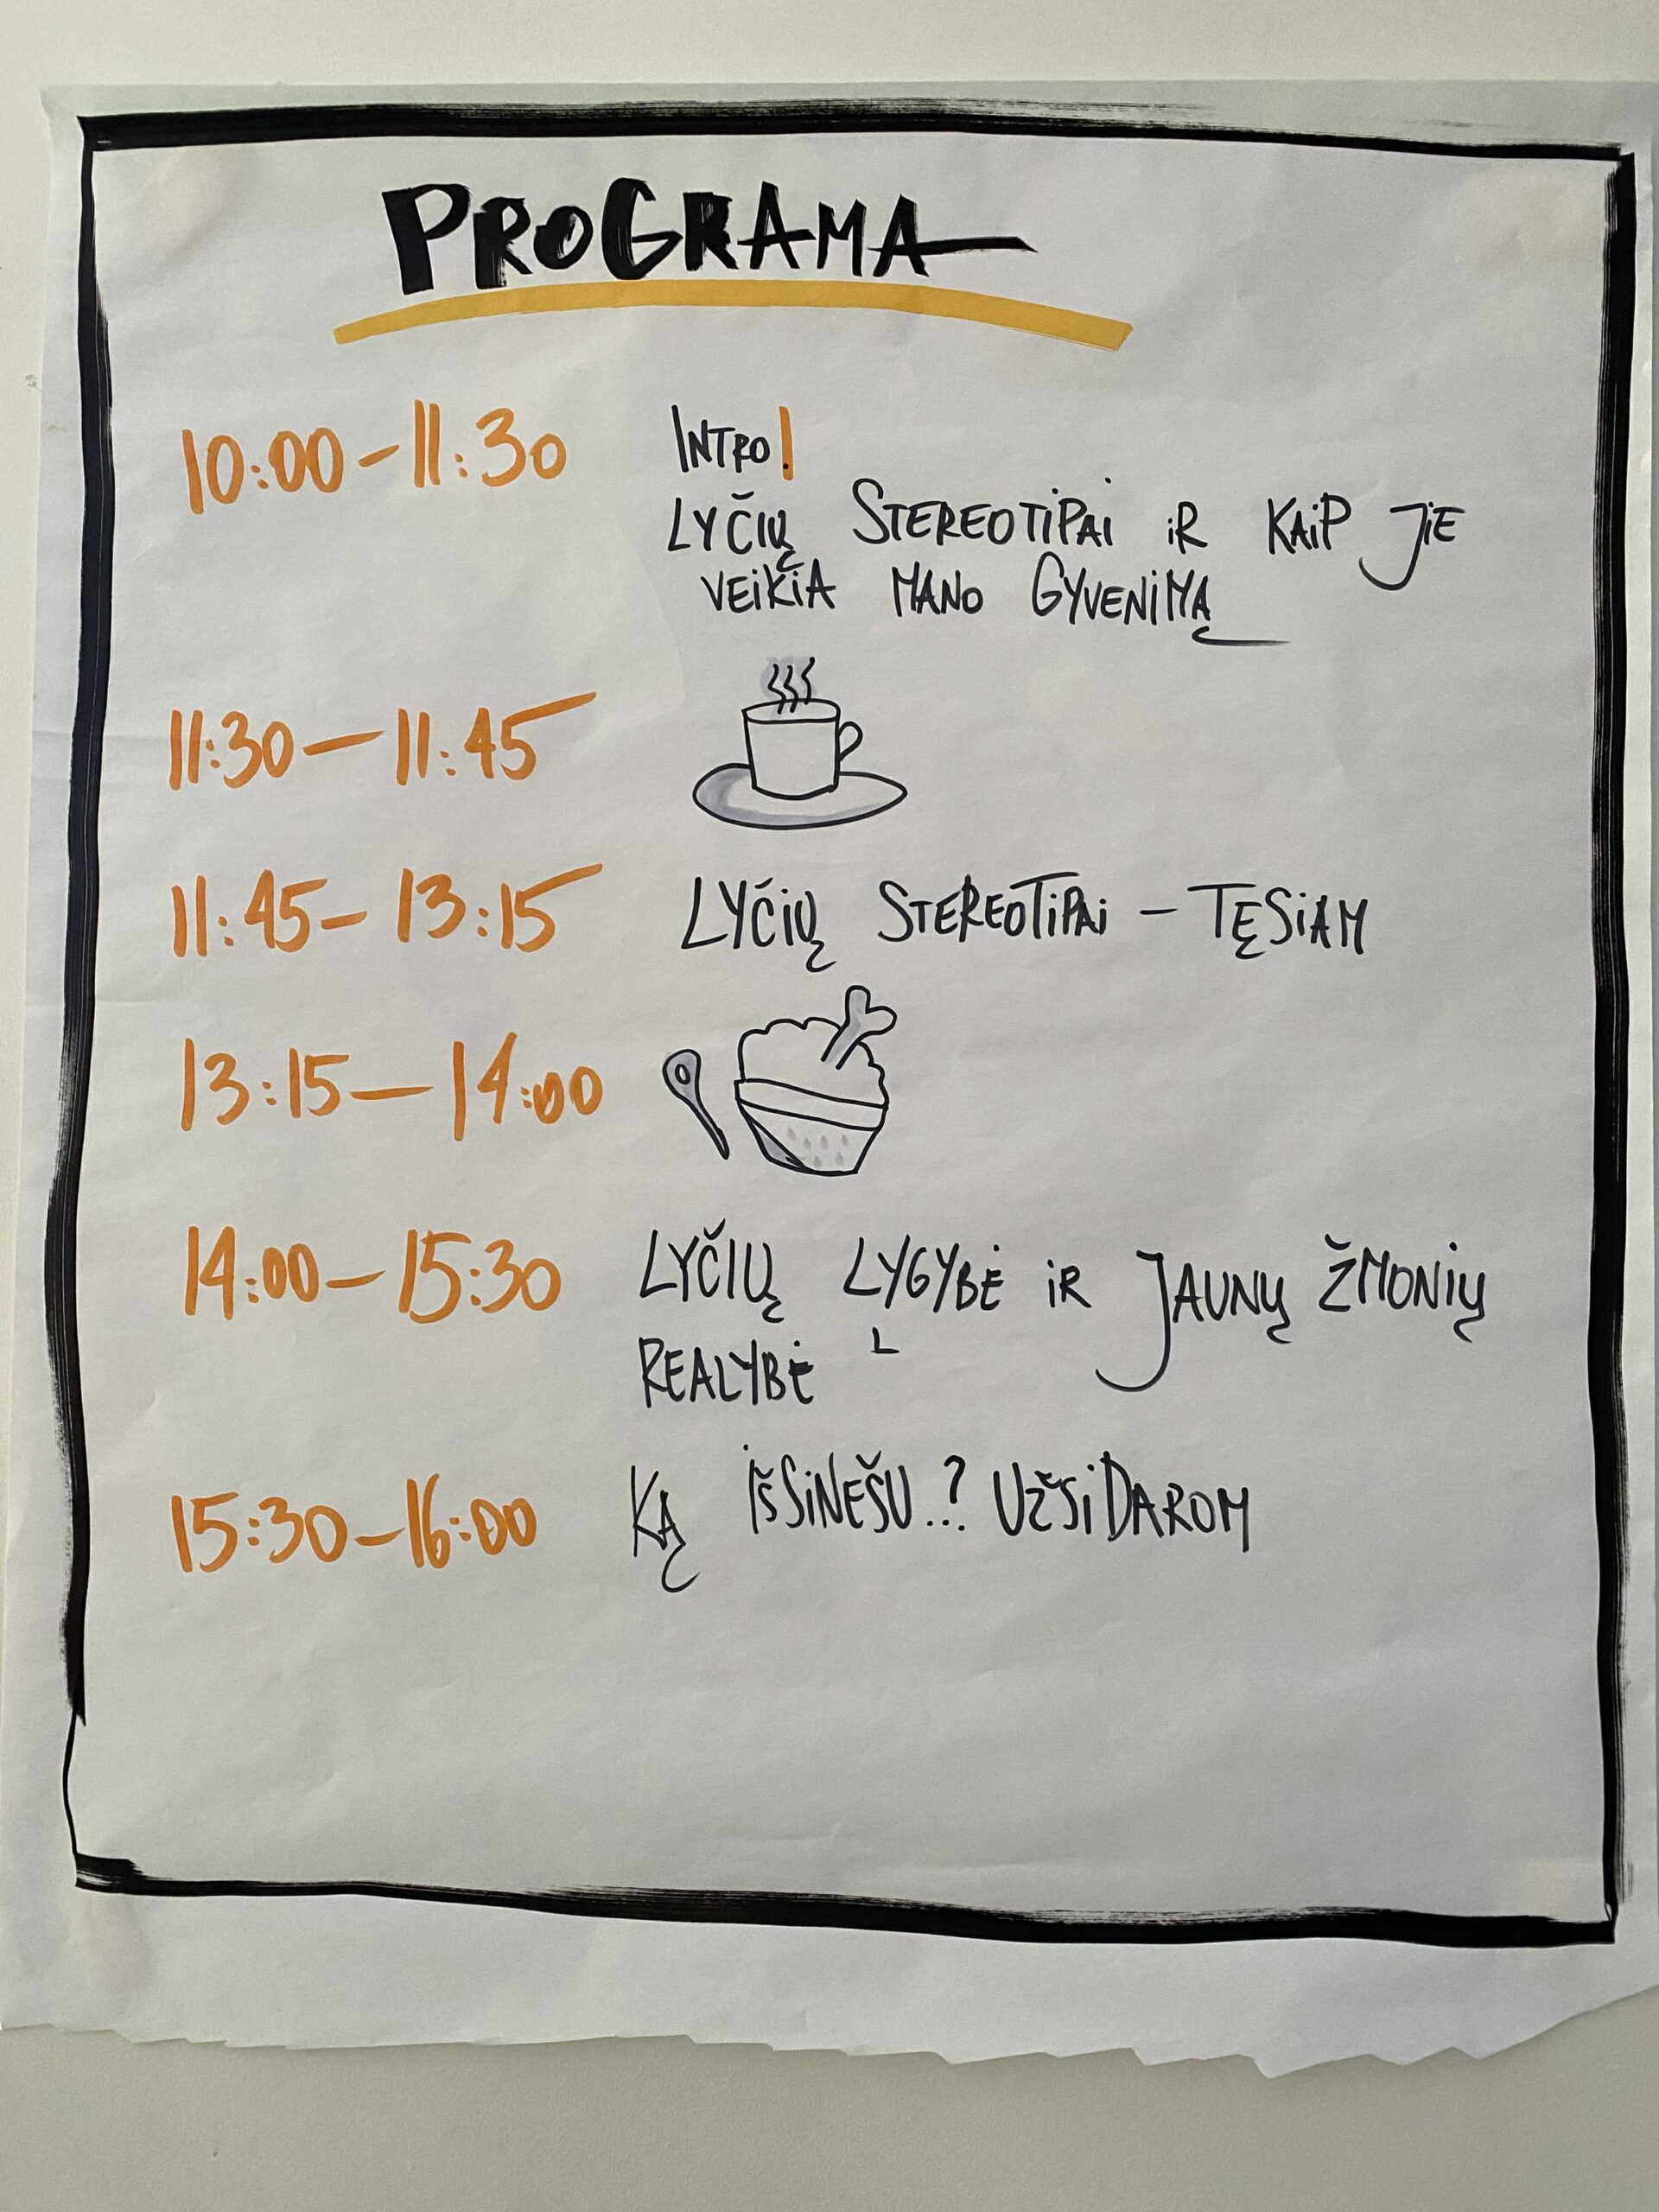 PROGRAMA
10:00 – 11:30 INTRO!
LYČIŲ STEREOTIPAI IR KAIP JIE
VEIKIA MANO GYVENIMĄ
11:30 – 11:45
11:45 – 13:15 LYČIŲ STEREOTIPAI – TĘSIAM
13:15 – 14:00
14:00 – 15:30 LYČIŲ LYGYBĖ IR JAUNŲ ŽMONIŲ
REALYBĖ
15:30 – 16:00 KĄ IŠSINEŠU..? UŽSIDAROM